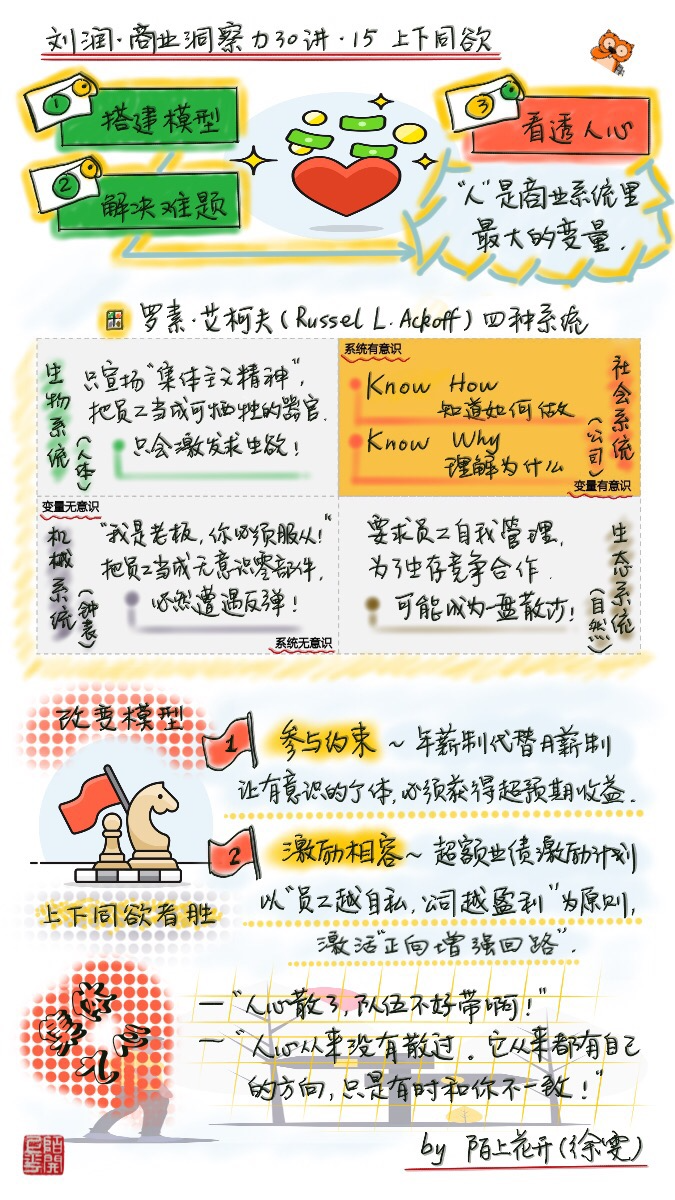 刘润·商业洞察力30讲·15 上下同欲
1
搭建模型
2
解决难题
3
看透人心
“人”是商业系统里
最大的变量.
罗素·艾柯夫(Russel L. Ackoff)四种系统
生物系统
(人体)
只宣扬“集体主义精神”,
把员工当成可牺牲的器官.
只会激发求生欲!
系统有意识
Know How
知道如何做
Know Why
理解为什么
社会系统
(公司)
变量有意识
变量无意识
机械系统
(钟表)
“我是老板,你必须服从!”
把员工当成无意识零部件,
必然遭遇反弹!
系统无意识
要求员工自我管理,
为了生存竞争合作.
可能成为一盘散沙!
生态系统
(自然)
改变模型
上下同欲者胜
1
参与约束~年薪制代替月薪制
让有意识的个体,必须获得超预期收益.
2
激励相容~超额业绩激励计划
以“员工越自私,公司越盈利”为原则,
激活“正向增强回路”.
—“人心散了,队伍不好带啊!”
—“人心从来没有散过.它从来都有自己
的方向,只是有时和你不一致!”
by 陌上花开(徐雯)